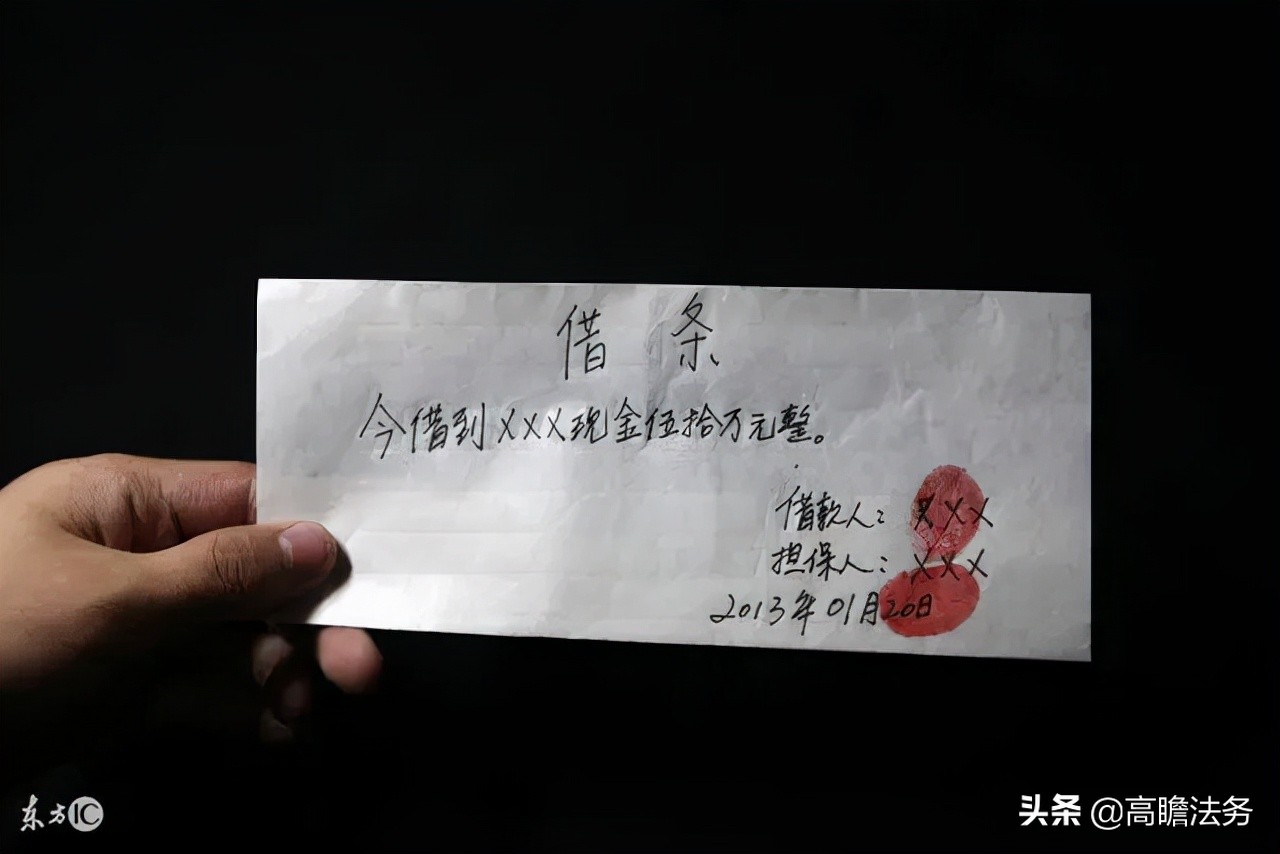 借 条
今借到XXX现金伍拾万元整。
借款人：XXX
担保人：XXX
2013年01月20日
东方IC
头条 @高瞻法务